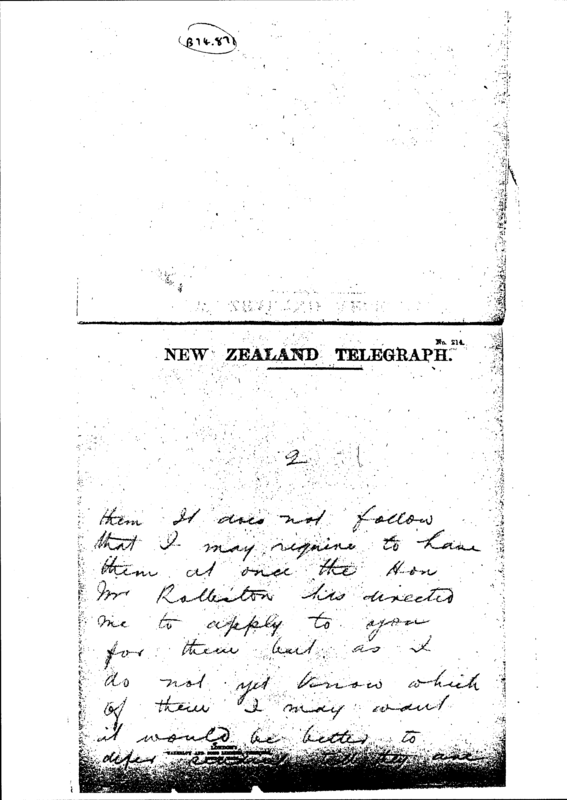 B74.87
No. 214.
NEW ZEALAND TELEGRAPH.
2
them It does not follow
that I may require to have
them at once the Hon
Mr Rolleston has directed
me to apply to you
for them but as I
do not yet know which
of them I may want
it would be better to
defer sending till they are